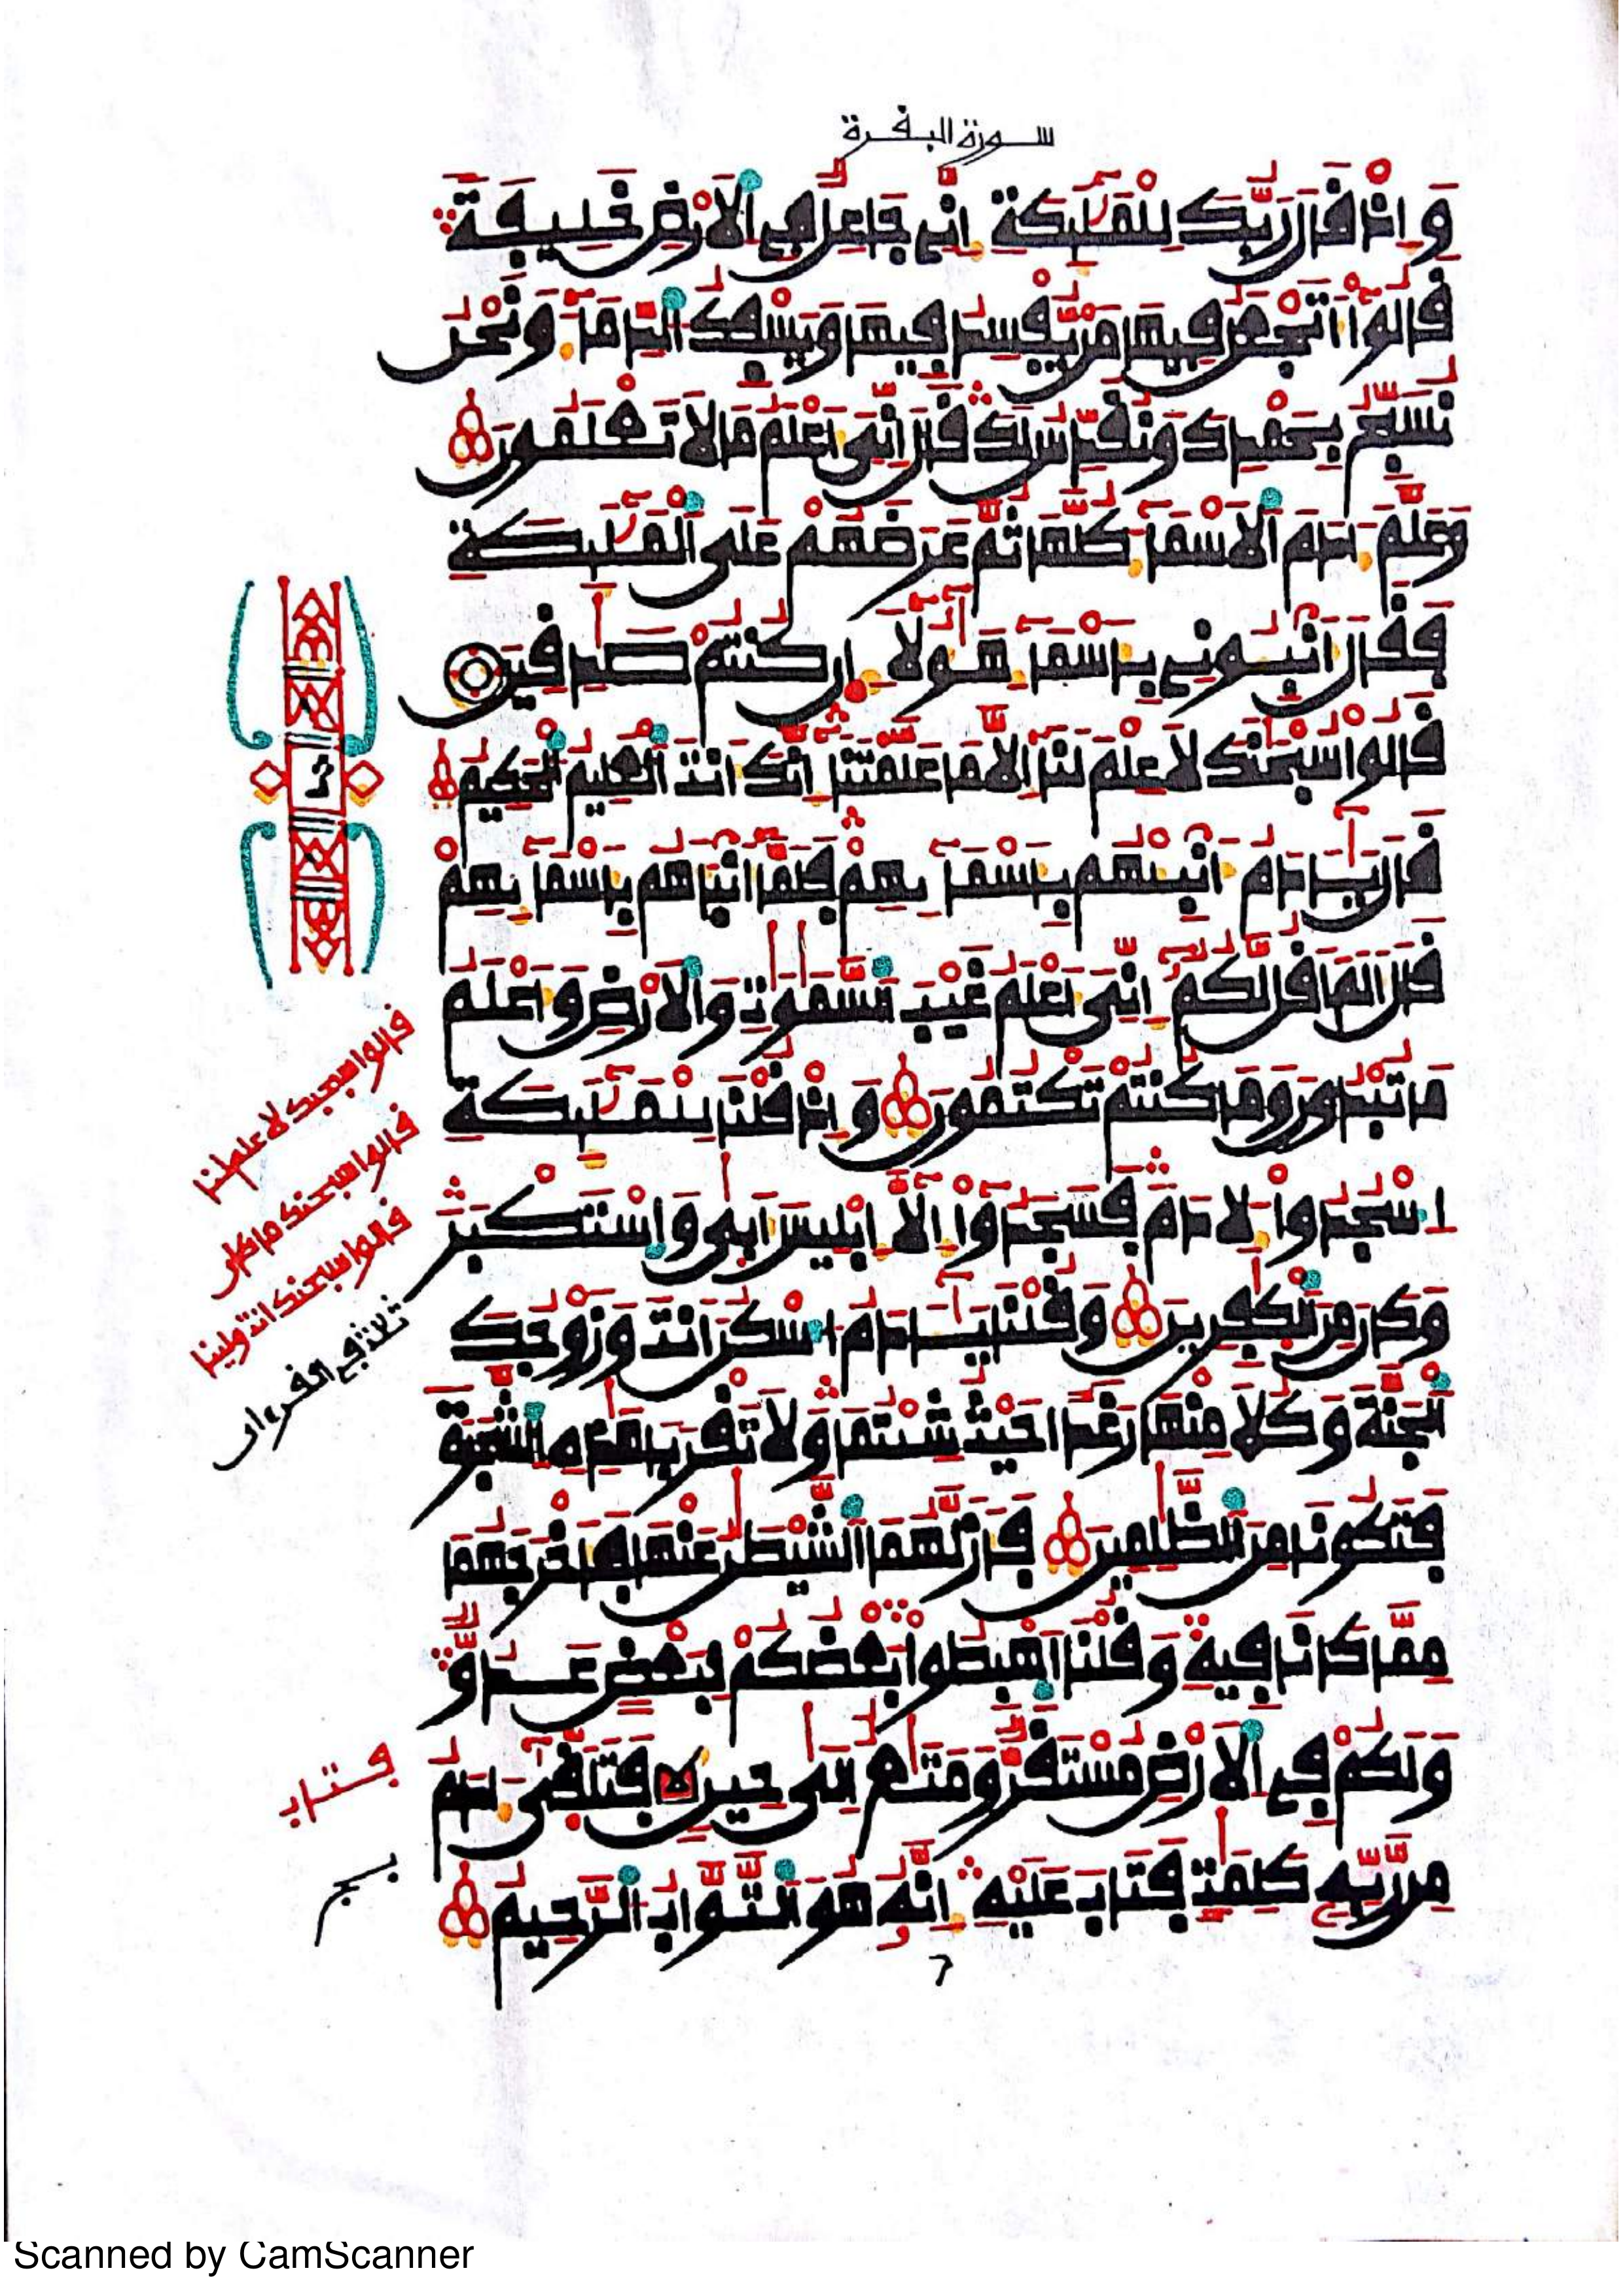 سورة البقرة
وَإِذْ قَالَ رَبُّكَ لِلْمَلَٰٓئِكَةِ إِنِّي جَاعِلٌ فِي الَارْضِ خَلِيفَةً
قَالُوٓاْ أَتَجْعَلُ فِيهَا مَنْ يُّفْسِدُ فِيهَا وَيَسْفِكُ الدِّمَآءَ وَنَحْنُ
نُسَبِّحُ بِحَمْدِكَ وَنُقَدِّسُ لَكَ قَالَ إِنِّيَ أَعْلَمُ مَا لَا تَعْلَمُونَ
وَعَلَّمَ ءَادَمَ الَاسْمَآءَ كُلَّهَا ثُمَّ عَرَضَهُمْ عَلَى الْمَلَٰٓئِكَةِ
فَقَالَ أَنْبِـُٔونِي بِأَسْمَآءِ هَٰٓؤُلَآءِ ان كُنْتُمْ صَٰدِقِينَ
قَالُواْ سُبْحَٰنَكَ لَا عِلْمَ لَنَآ إِلَّا مَا عَلَّمْتَنَآ إِنَّكَ أَنْتَ الْعَلِيمُ الْحَكِيمُ
قَالَ يَٰٓـَٔادَمُ أَنْبِئْهُمْ بِأَسْمَآئِهِمْ فَلَمَّآ أَنْبَأَهُمْ بِأَسْمَآئِهِمْ
قَالَ أَلَمَ اقُل لَّكُمُۥٓ إِنِّيَ أَعْلَمُ غَيْبَ السَّمَٰوَٰتِ وَالَارْضِ وَأَعْلَمُ
مَا تُبْدُونَ وَمَا كُنْتُمْ تَكْتُمُونَ وَإِذْ قُلْنَا لِلْمَلَٰٓئِكَةِ
اِسْجُدُواْ لِأَدَمَ فَسَجَدُوٓاْ إِلَّآ إِبْلِيسَ أَبَىٰ وَاسْتَكْبَرَ
وَكَانَ مِنَ الْكَٰفِرِينَ وَقُلْنَا يَٰٓـَٔادَمُ اسْكُنَ انْتَ وَزَوْجُكَ
الْجَنَّةَ وَكُلَا مِنْهَا رَغَدًا حَيْثُ شِئْتُمَا وَلَا تَقْرَبَا هَٰذِهِ الشَّجَرَةَ
فَتَكُونَا مِنَ الظَّٰلِمِينَ فَأَزَلَّهُمَا الشَّيْطَٰنُ عَنْهَا فَأَخْرَجَهُمَا
مِمَّا كَانَا فِيهِ وَقُلْنَا اهْبِطُواْ بَعْضُكُمْ لِبَعْضٍ عَدُوٌّ
وَلَكُمْ فِي الَارْضِ مُسْتَقَرٌّ وَمَتَٰعٌ إِلَىٰ حِينٍ فَتَلَقَّىٰٓ ءَادَمُ
مِن رَّبِّهِۦ كَلِمَٰتٍ فَتَابَ عَلَيْهِ إِنَّهُۥ هُوَ التَّوَّابُ الرَّحِيمُ
قالوا سبحنك لا علم لنا
قالوا سبحنك ما كان
قالوا سبحنك انت ولينا
ثلاثة في القرءان
فتاب
Scanned by CamScanner